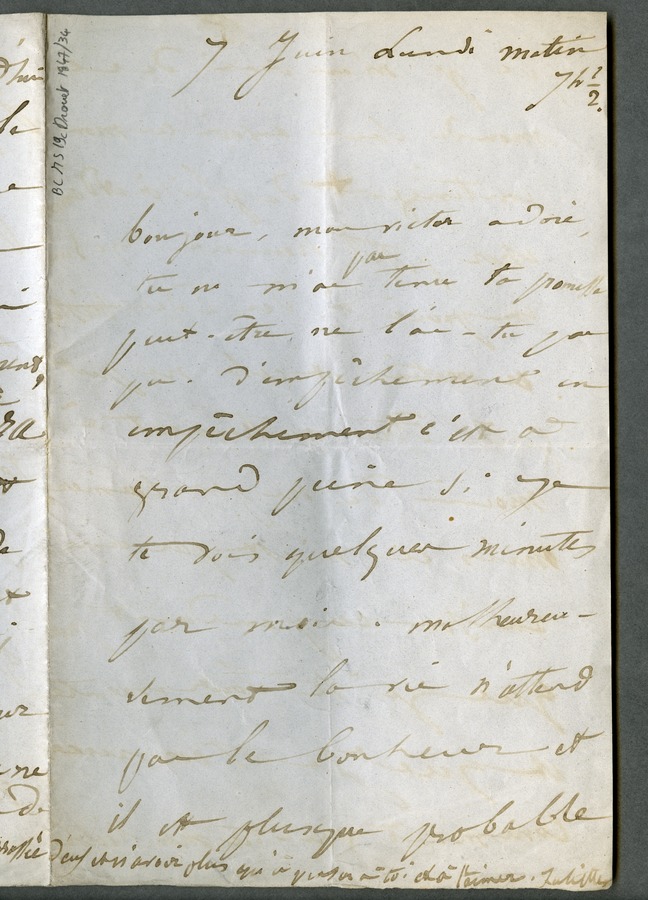 BC MS 19c Drouet 1847/34
7 Juin Lundi matin
7h ½.
bonjour, mon victor adoré,
pas
tu ne m'as tenu ta promesse
peut-être ne l'as-tu pas
pu. D'empêchement en
empêchement c'est à
grand peine si je
te vois quelques minutes
par mois. malheureu-
sement la vie n'attend
pas le bonheur et
il est plusque probable
d'eux et n'avoir plus qu'à penser à toi et à t'aimer. Juliette